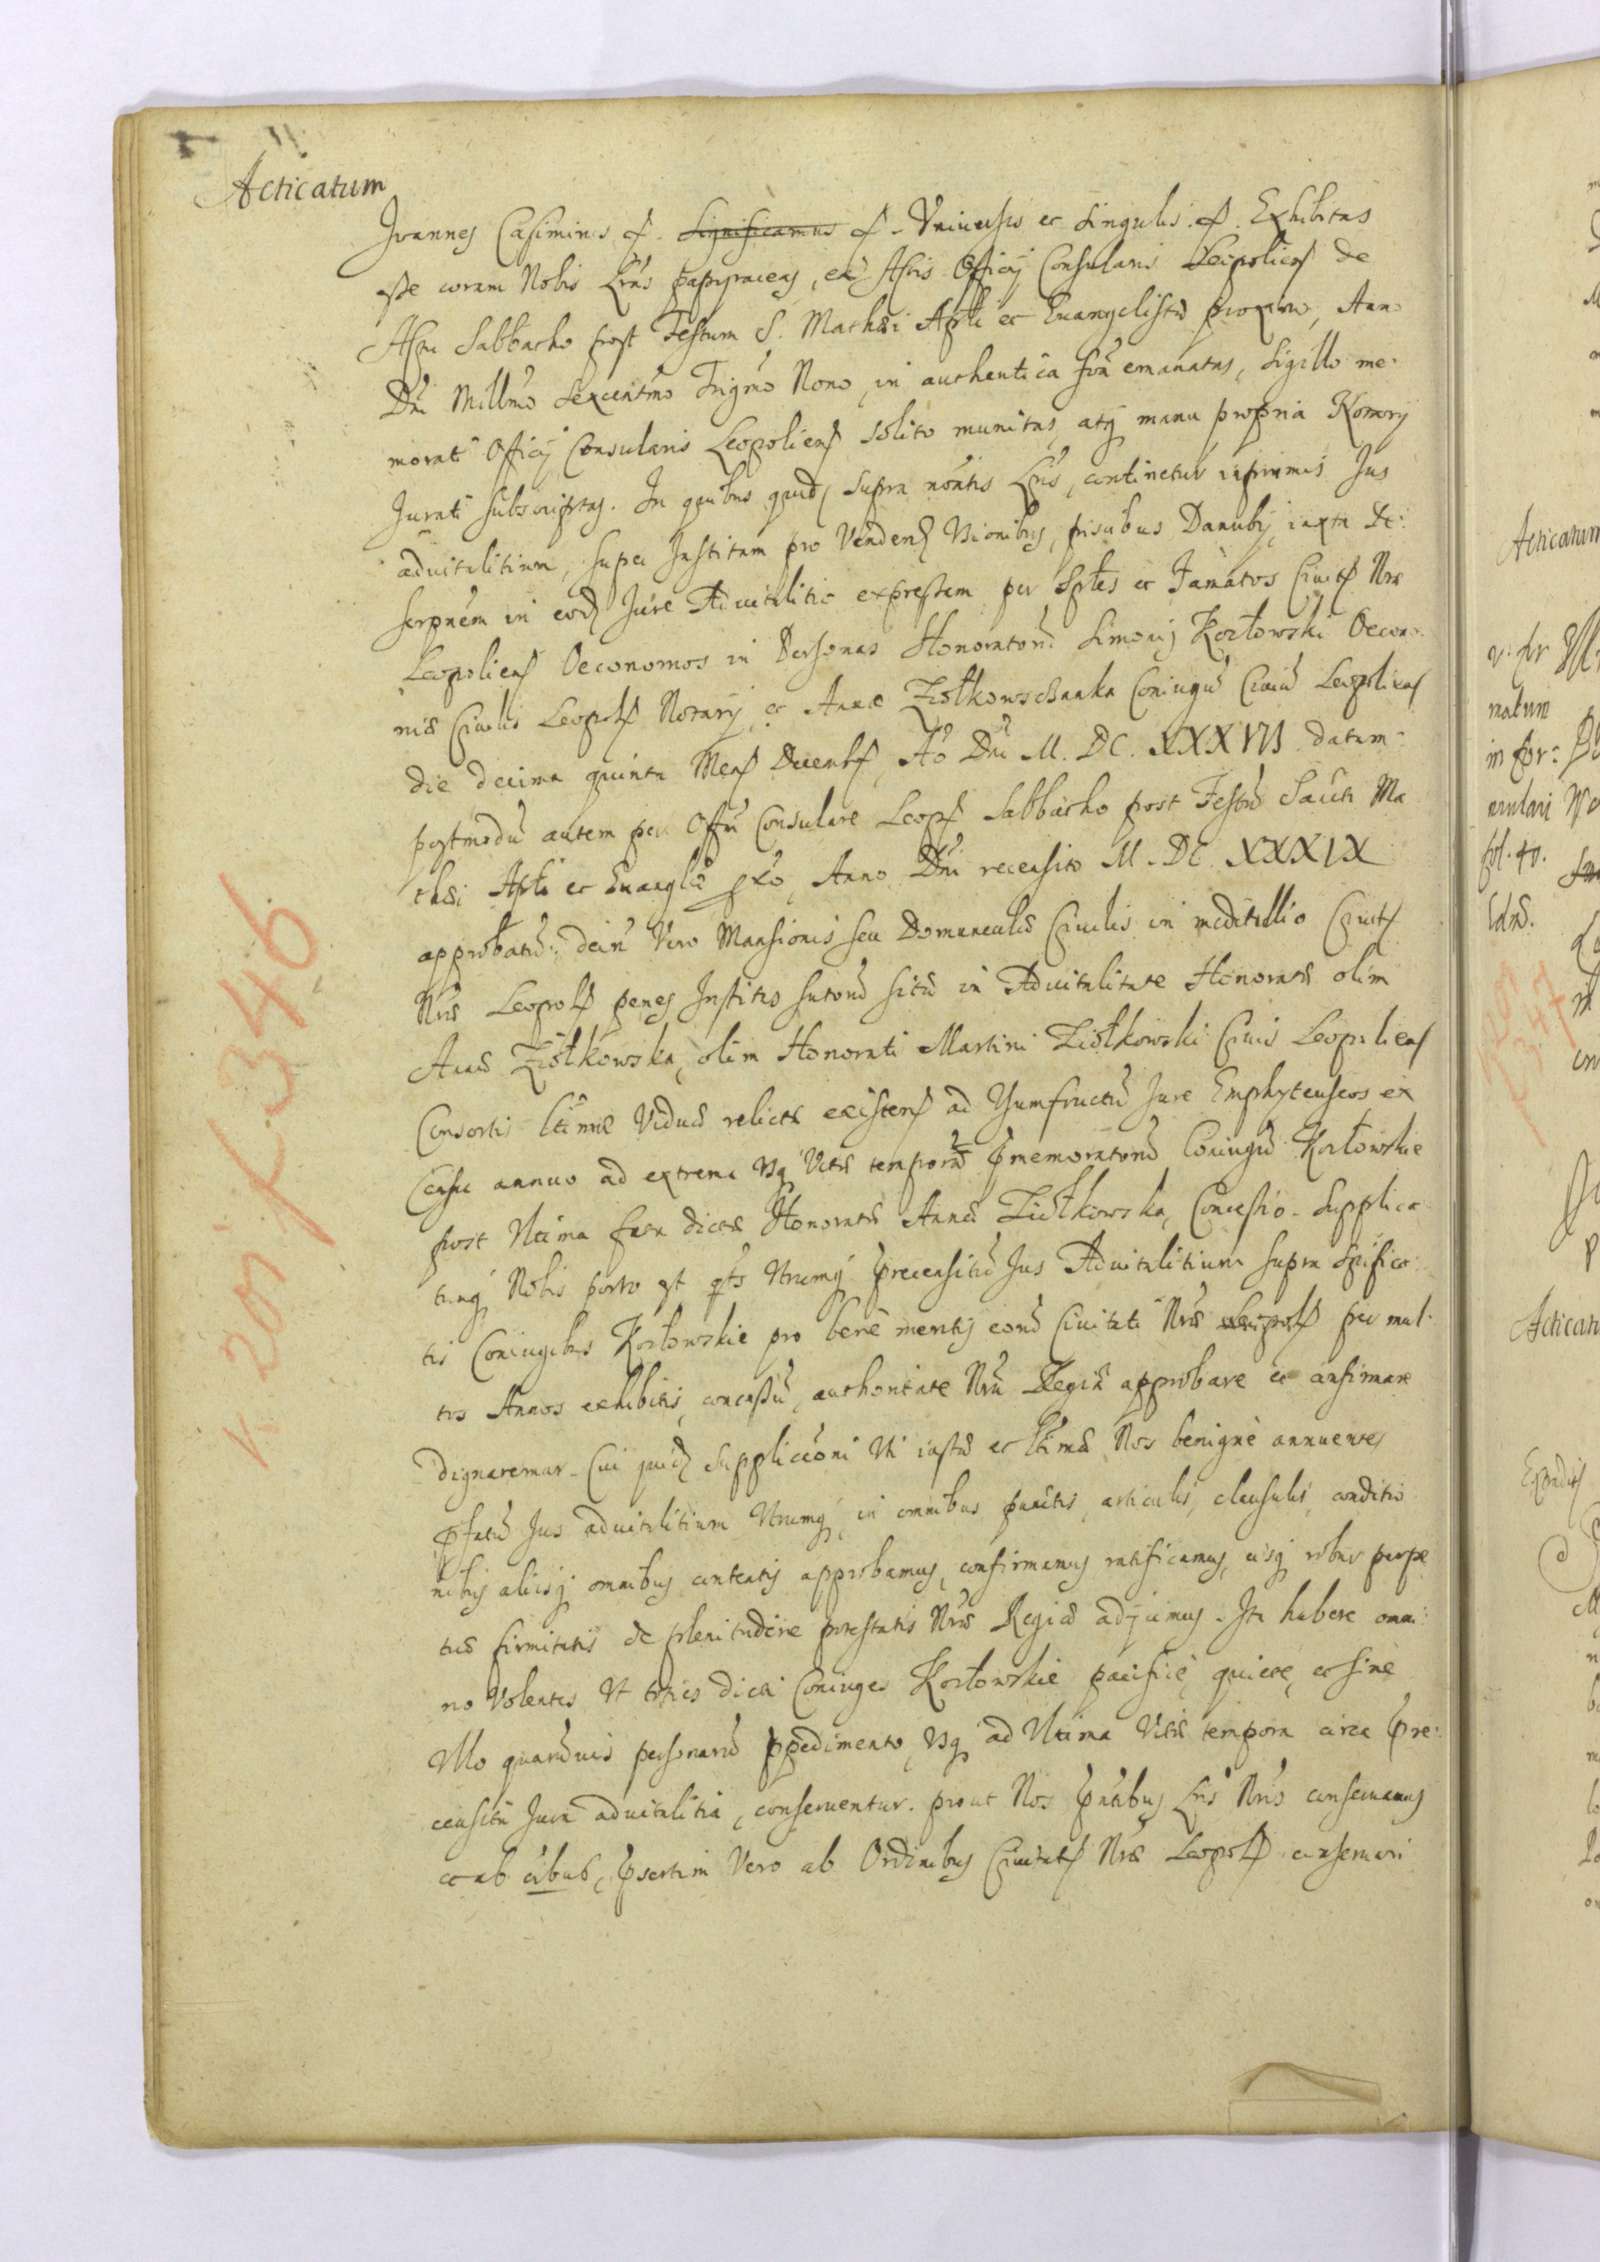 Acticatum
Joannes Casimirus etc. Significamus etc. Vniuersis et singulis etc. Exhibitas
esse coram Nobis Lras papyraceas, ex Actis Officij Consularis Leopolien de
Actu Sabbatho post Festum S. Mathæi Apli et Euangelistæ proximo, Anno
Dni Millmo Sexcentmo Trigmo Nono, in authentica forã emanatas, Sigillo me-
morati Officij Consularis Leopolien solito munitas, atq manu propria Notarij
Jurati subscriptas. In quibus quid supra nõatis Lris, continetur inprimis Jus
aduitalitium, super Institam pro Vendend Vnionibus, piscibus Danubij, iuxta de-
scrpnem in eod Jure Aduitalitio expressam per Sples et Famatos Ciuit Nræ
Leopolien Oeconomos in Personas Honoratorũ Simonis Kozłowski Oecono-
miæ Ciuilis Leopol Notarij et Annæ Ziołkowschanka Coniugũ Ciuiũ Leopolien
die decima quinta Mens Decemb, Ao Dni M. DC. XXXVII datum:
postmodũ autem per Offm Consulare Leop Sabbatho post Festũ Sacti Ma
thæi Apli et Euanglæ pxo, Anno Dni recensito M. DC. XXXIX
approbatũ: dein Vero Mansionis seu Domunculæ Ciuilis in meditullio Ciuit
Nræ Leopol penes Institas sutorũ sitæ in Aduitalitate Honoratæ olim
Annæ Ziołkowska, olim Honorati Martini Ziołkowski Ciuis Leopolien
Consortis ltimæ Viduæ relictæ existen ad Vsumfructũ Jure Emphyteuseos ex
Censu annuo ad extrema vsq Vitæ tempora pmemoratorũ Coniugũ Kozłowskie
post Vltima fata dictæ Honoratæ Annæ Ziołkowska, Concessio. Supplica
tumq Nobis porro est qts Vtrumq precensitũ Jus Aduitalitium supra spifica
tis Coniugibus Kozłowskie pro bene meritis eorũ Ciuitati Nræ Leopol per mul-
tos Annos exhibitis, concessũ, authoritate Nra Regia approbare et confirmare
dignaremur. Cui quid Supplicaoni Vti iustæ et ltimæ Nos benignè annuentes
pfatũ Jus aduitalitium Vtrumq, in omnibus punctis, articulis, clausulis, conditio
nibus alijsq omnibus contentis approbamus, confirmamus ratificamus, eisq robur perpe
tuæ firmitatis de plenitudine potestatis Nræ Regiæ adijcimus. Ita habere omni
no Volentes Vt toties dicti Coniuges Kozłowskie pacificè, quietè, et sine
Vllo quarũuis personarũ ppedimento, vsq ad Vltima Vitæ tempora circa pre-
censita Jura aduitalitia, conseruentur. prout Nos pntibus Lris Nris conseruamus
et ab oibus, psertim Vero ab Ordinibus Ciuitat Nræ Leopol conseruari
k. 201 f. 346
Acticatum
natum
in
fol. 40.
Acticatu